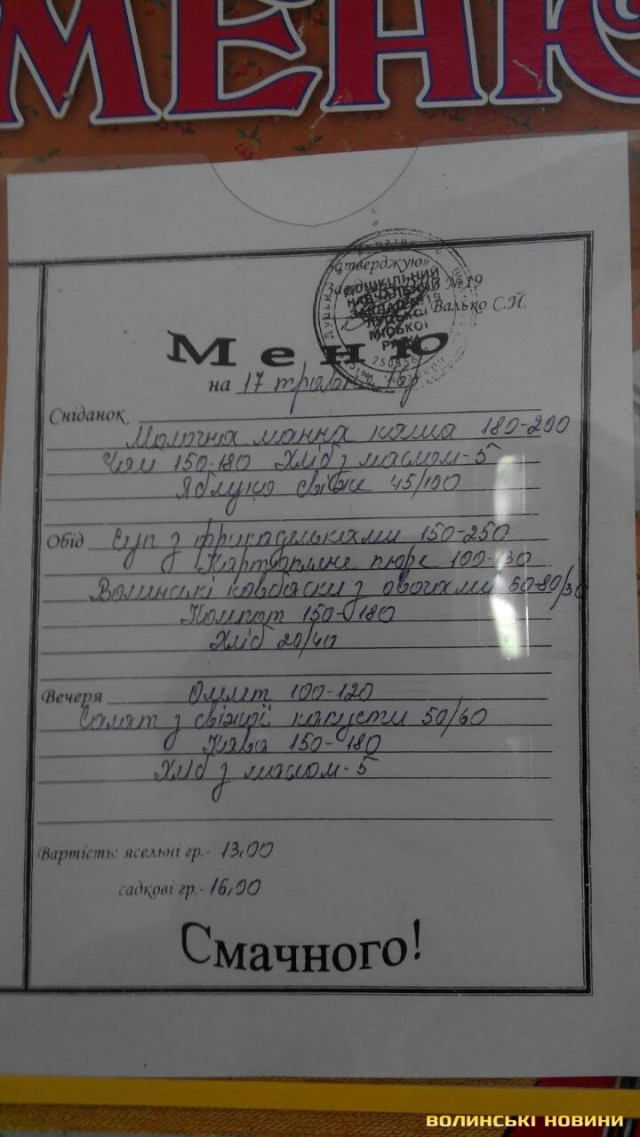 МЕНЮ
Затверджую»
№19
Валько С.Й.
ДОШКІЛЬНИЙ
НАВЧАЛЬНИЙ
ЗАКЛАД №19
ЛУЦЬКОЇ
МІСЬКОЇ
РАДИ
Меню
на 17 травня
Сніданок Молочна манна каша 180-200
Чай 150-180 Хліб з маслом-5
Яблуко свіже 45/100
Обід Суп з фрикадельками 150-250
Картопляне пюре 100-130
Волинські ковбаски з овочами 60-80/30
Компот 150-180
Хліб 20/40
Вечеря Омлет 100-120
Салат з свіжої капусти 50/60
Кава 150-180
Хліб з маслом-5
Вартість: ясельні гр.- 13,00
садкові гр.- 16,00
Смачного!
ВОЛИНСЬКІ НОВИНИ